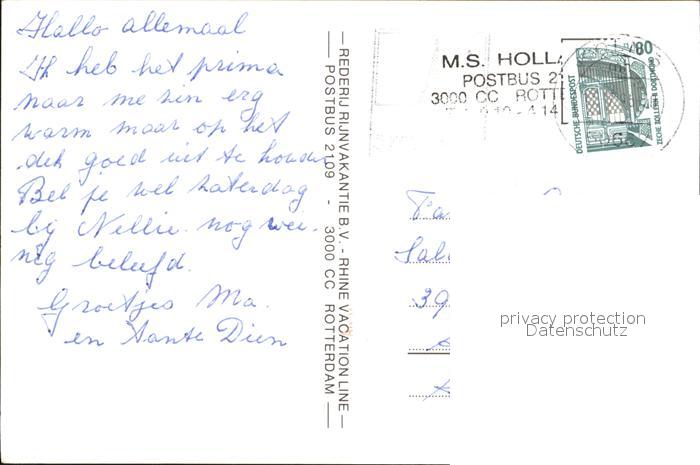 Hallo allemaal
Ik heb het prima
naar me zin erg
warm maar op het
dek goed uit te houden
Bel je wel zaterdag
bij Nellie. nog wei-
nig beleefd.
Groetjes Ma.
en Tante Dien
REDERIJ RIJNVAKANTIE B.V. - RHINE VACATION LINE
POSTBUS 2109 - 3000 CC ROTTERDAM
M.S. HOLL
POSTBUS 21
3000 CC ROTT
80
DEUTSCHE BUNDESPOST
ZECHE ZOLLERN II DORTMUND
Fa
Sal
39
privacy protection
Datenschutz